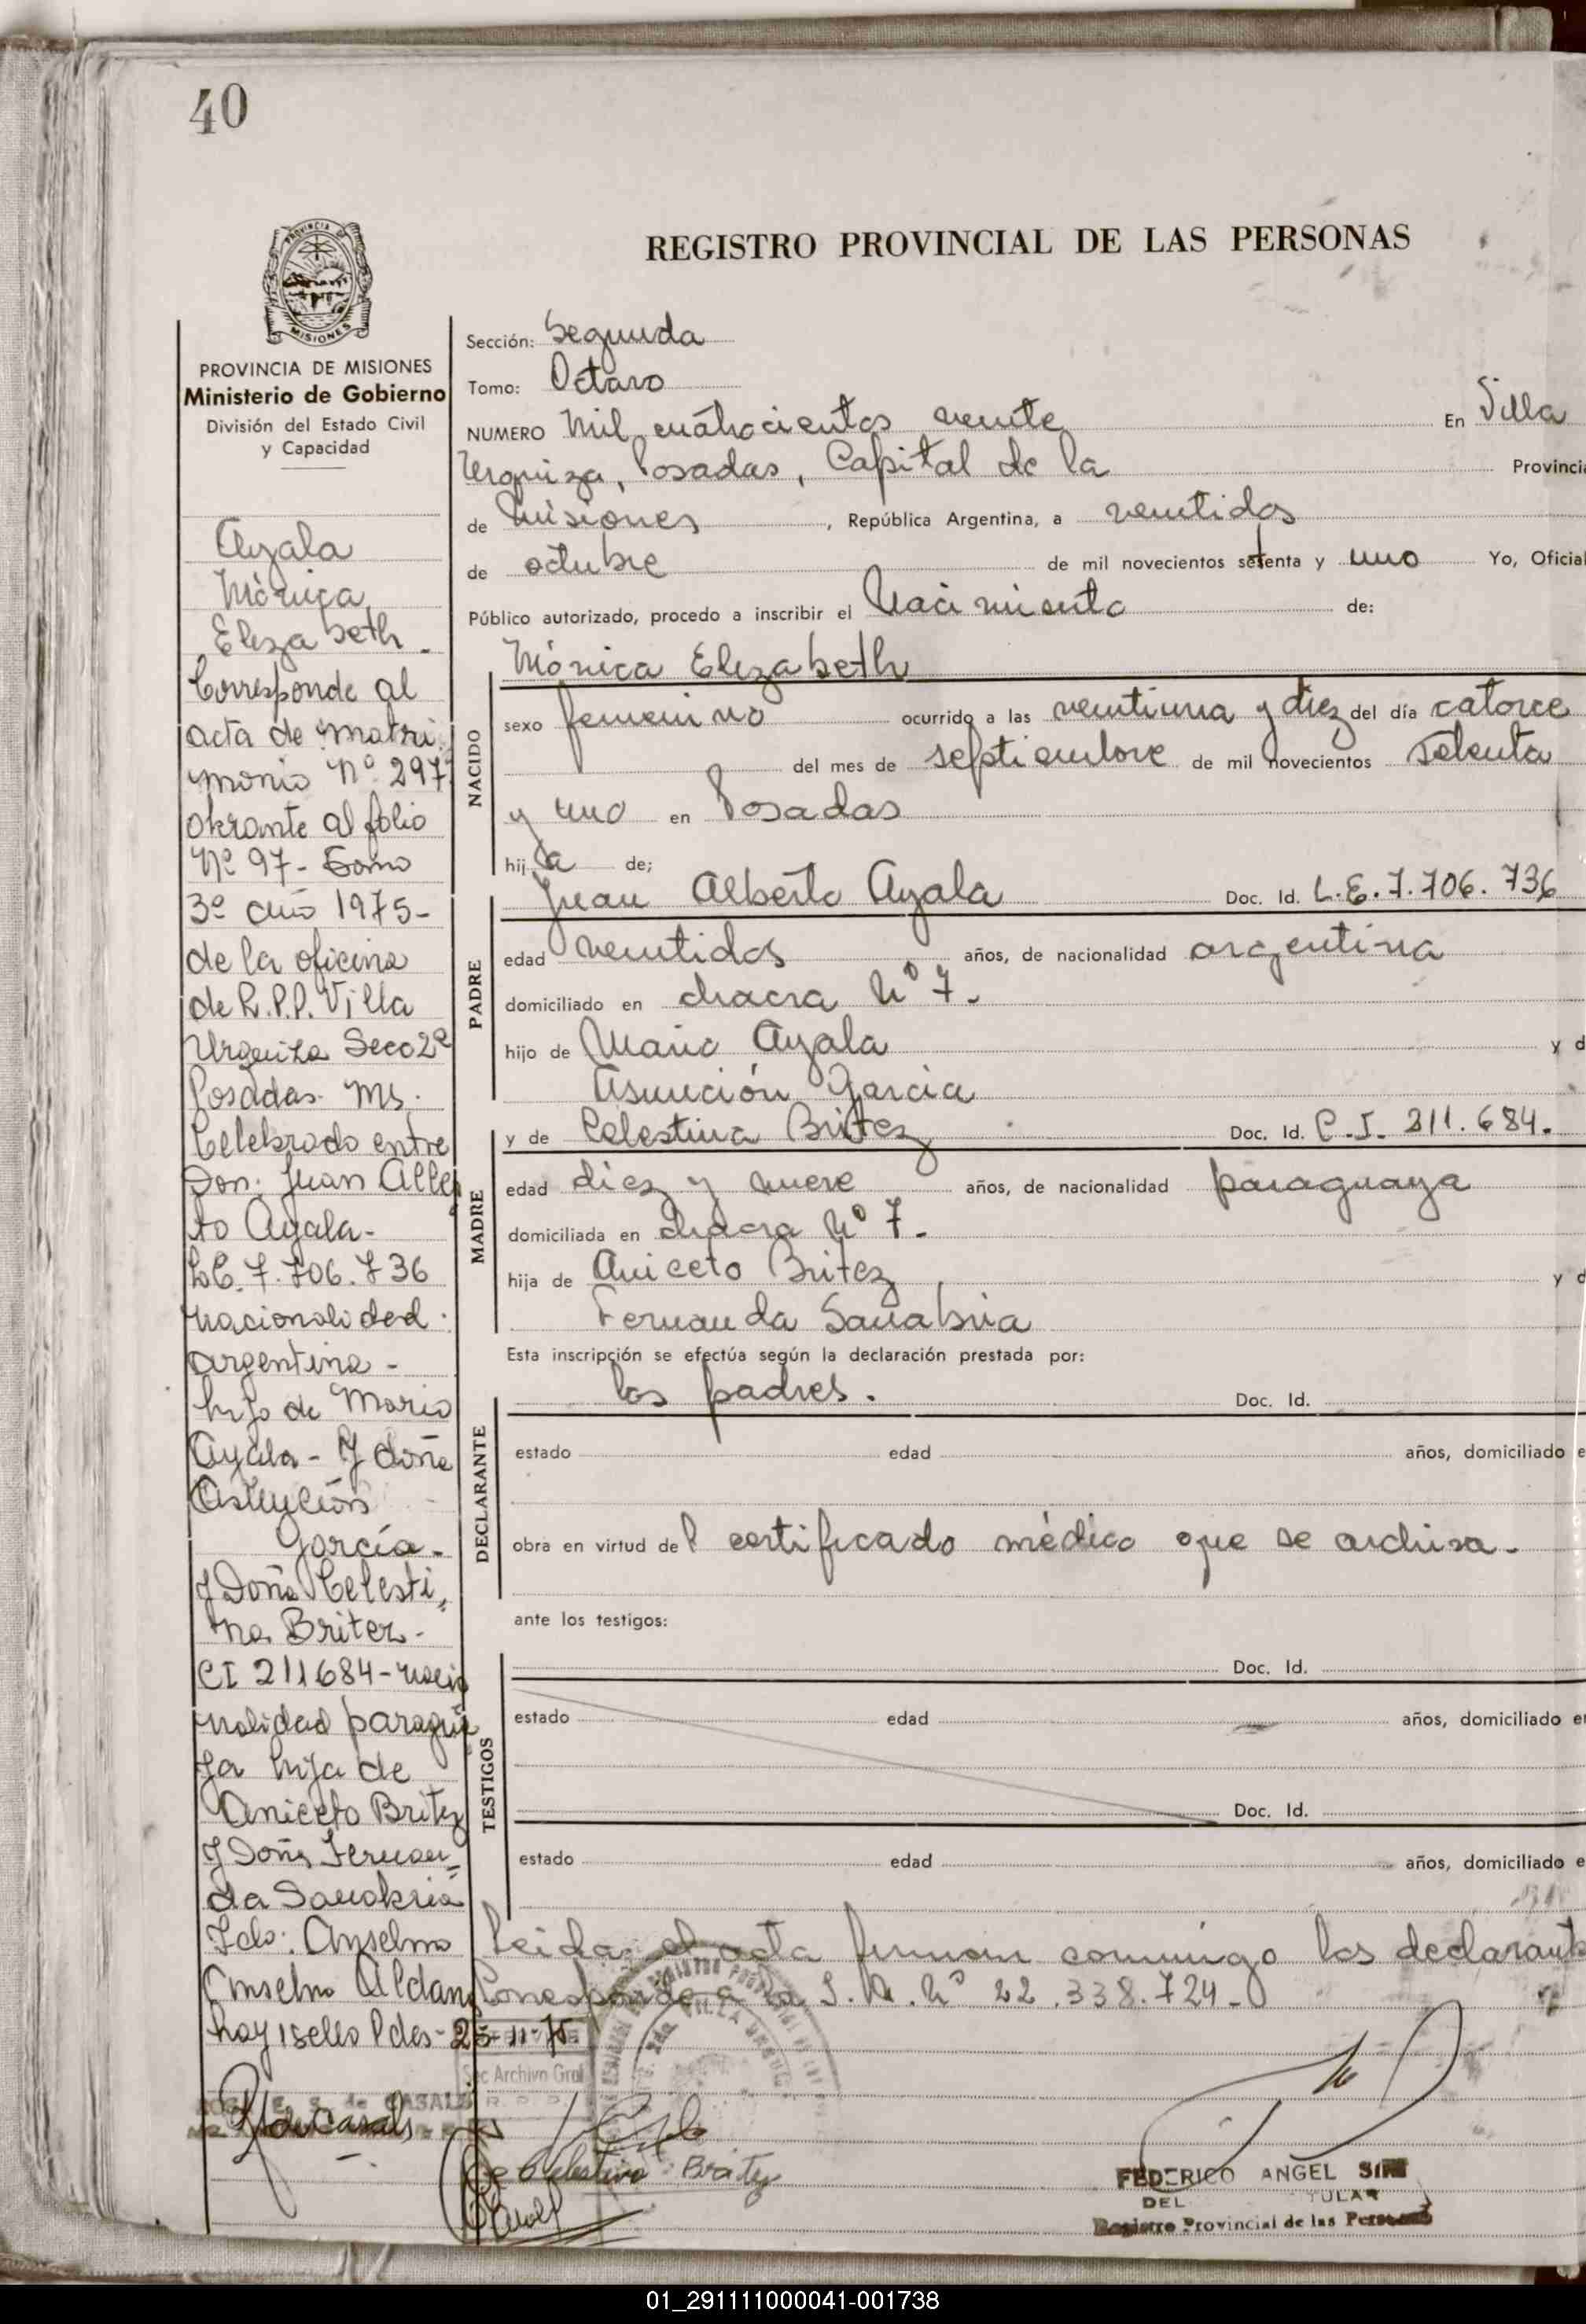 40
PROVINCIA DE
MISIONES
REGISTRO PROVINCIAL DE LAS PERSONAS
PROVINCIA DE MISIONES
Ministerio de Gobierno
División del Estado Civil
y Capacidad
Ayala
Mónica
Elizabeth.
Corresponde al
acta de matri
monio Nº 297
obrante al folio
Nº 97 - Tomo
3º año 1975-
de la oficina
de R.P.P. Villa
Urquiza Secc 2ª
Posadas. Ms.
Celebrado entre
Don. Juan Alber
to Ayala-
LE. 7.706.736
nacionalidad
argentina -
hijo de Mario
Ayala - y doña
Asunción
García-
y Doña Celesti
na Britez-
CI 211684- nacio
nalidad paragua
ya hija de
Aniceto Britez
y Doña Fernan
da Sanabria
Fdo: Anselmo
Anselmo Aldana
hay 1 sello Pdas - 25-11-75
Sección: Segunda
Tomo: Octavo
NUMERO Mil cuatrocientos veinte En Villa
Urquiza, Posadas, Capital de la Provincia
de Misiones, República Argentina, a veintidos
de octubre de mil novecientos setenta y uno Yo, Oficial
Público autorizado, procedo a inscribir el Nacimiento de:
Mónica Elizabeth
NACIDO
sexo femenino ocurrido a las veintiuna y diez del día catorce
del mes de septiembre de mil novecientos setenta
y uno en Posadas
hija de;
Juan Alberto Ayala Doc. Id. L.E.7.706.736
PADRE
edad veintidos años, de nacionalidad argentina
domiciliado en chacra Nº 7.
hijo de Mario Ayala y d
Asunción García
y de Celestina Britez Doc. Id. C.I. 211.684.
MADRE
edad diez y nueve años, de nacionalidad paraguaya
domiciliada en chacra Nº 7.
hija de Aniceto Britez y d
Fernanda Sanabria
Esta inscripción se efectúa según la declaración prestada por:
los padres. Doc. Id.
DECLARANTE
estado edad años, domiciliado e
obra en virtud del certificado médico que se archiva.
ante los testigos:
Doc. Id.
TESTIGOS
estado edad años, domiciliado en
Doc. Id.
estado edad años, domiciliado e
Leida el acta firman conmigo los declarante
Corresponde a la I. N. Nº 22.338.724-
Sec Archivo Gral
R. P. P.
E. S. de CASALS
de Casals
Celestina Britez
FEDERICO ANGEL
DEL TULAR
Registro Provincial de las Personas
01_291111000041-001738